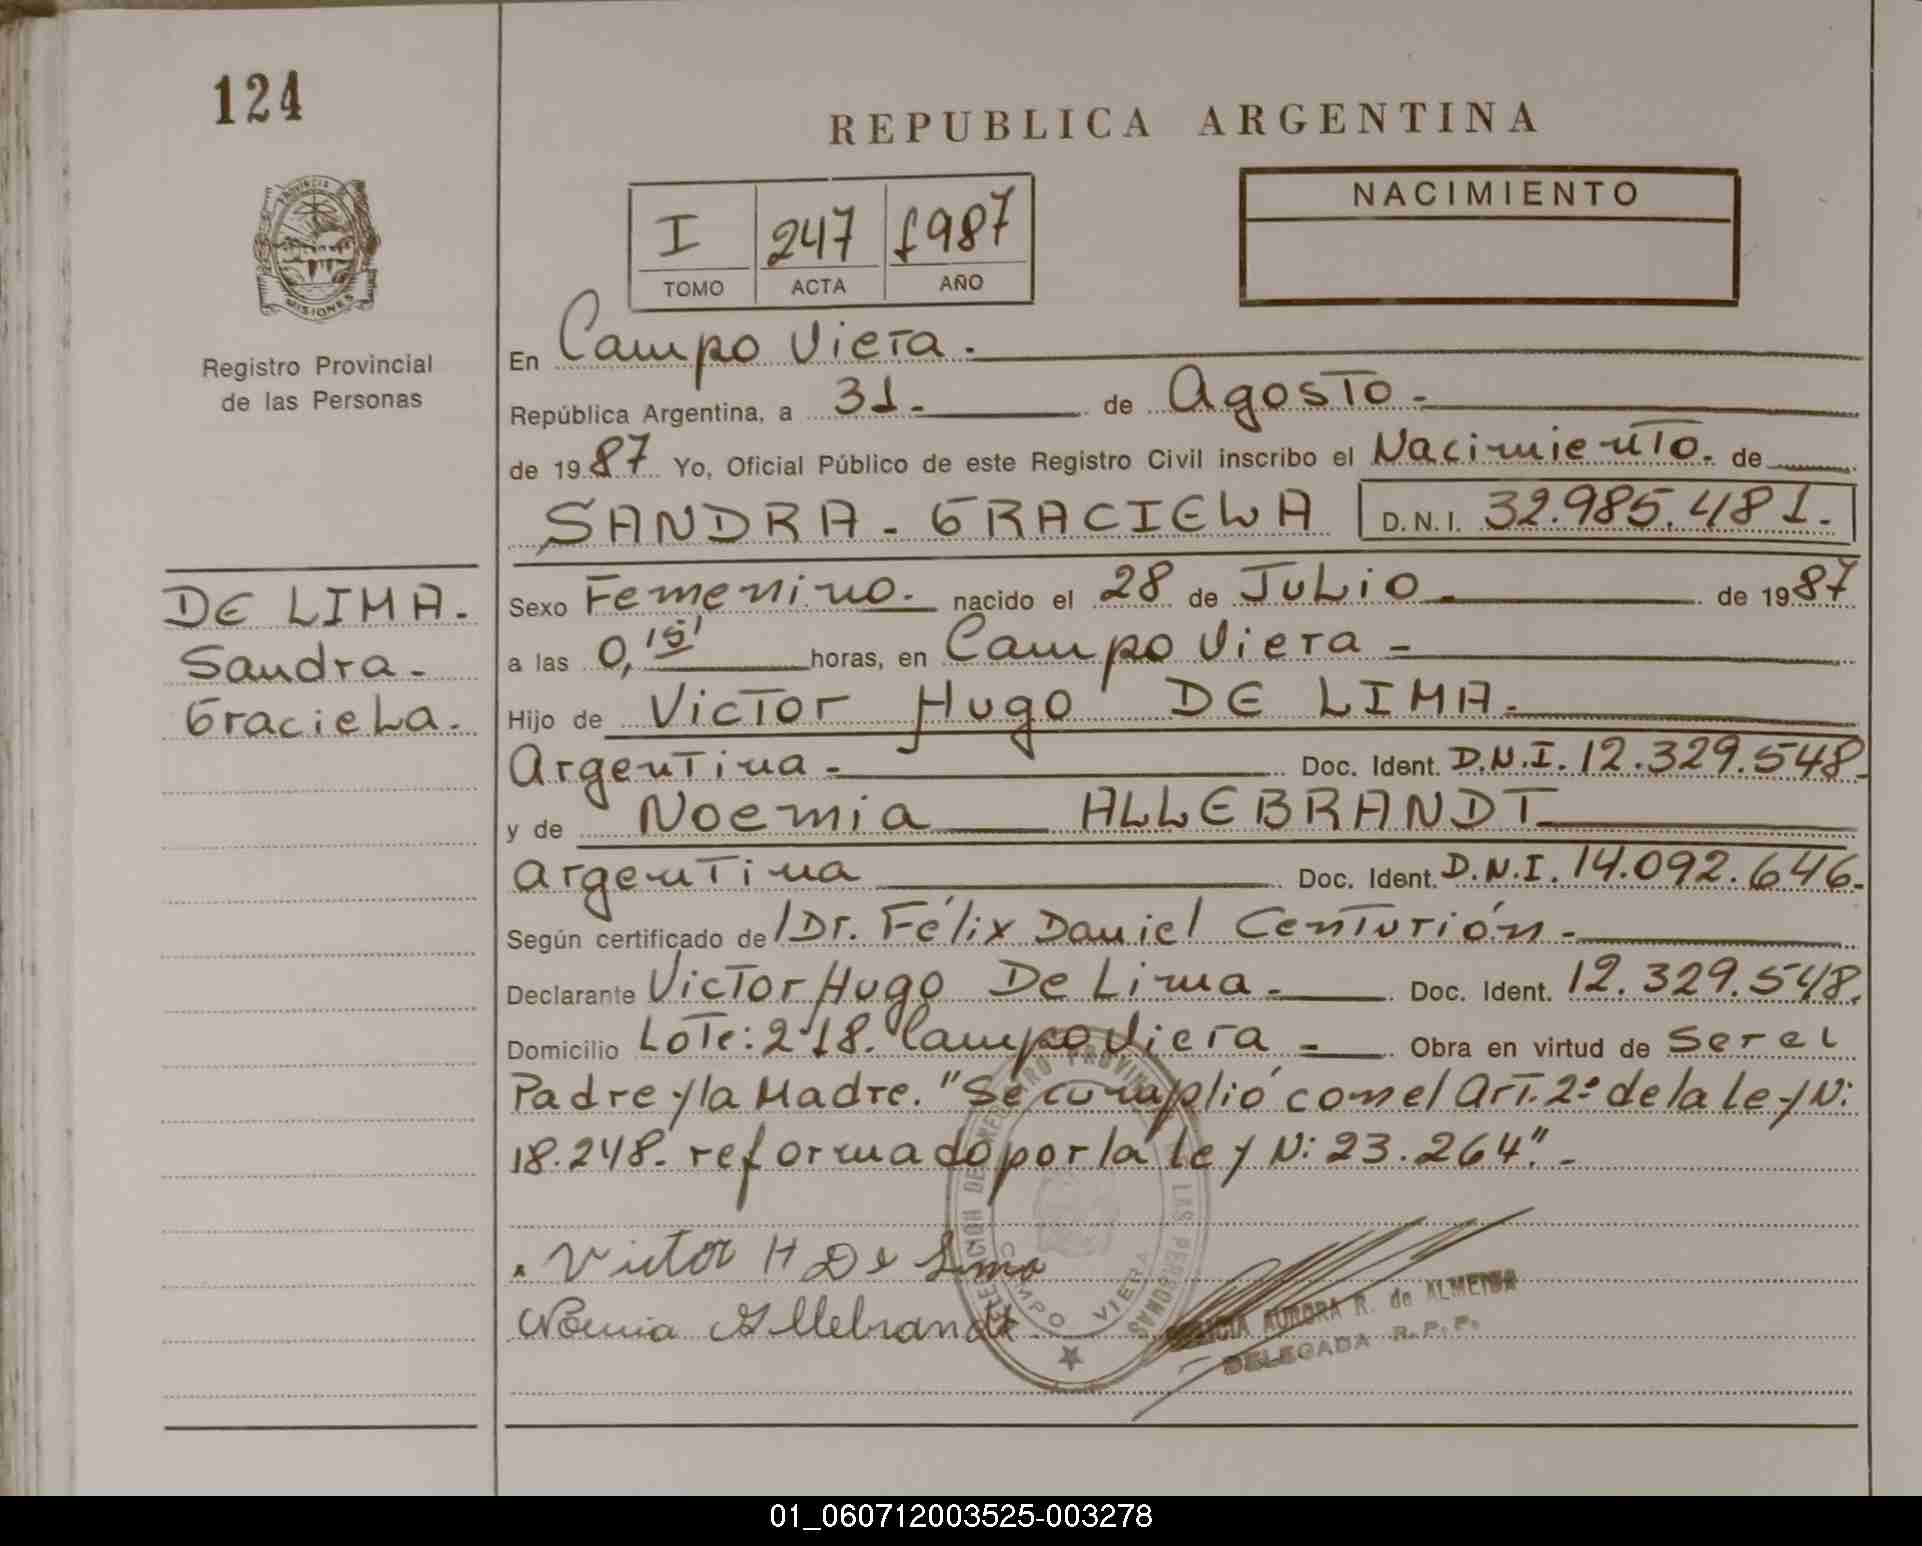 124
REPUBLICA ARGENTINA
PROVINCIA
MISIONES
Registro Provincial
de las Personas
I 247 1987
TOMO ACTA AÑO
NACIMIENTO
En Campo Viera.
República Argentina, a 31. de Agosto.
de 1987 Yo, Oficial Público de este Registro Civil inscribo el Nacimiento. de
SANDRA - GRACIELA D.N.I. 32.985.481.
DE LIMA.
Sandra.
Graciela.
Sexo Femenino. nacido el 28 de Julio. de 1987
a las 0,15' horas, en Campo Viera -
Hijo de Victor Hugo DE LIMA.
Argentina - Doc. Ident. D.N.I. 12.329.548.
y de Noemia ALLEBRANDT
Argentina Doc. Ident. D.N.I. 14.092.646.
Según certificado de Dr. Félix Daniel Centurión -
Declarante Victor Hugo De Lima - Doc. Ident. 12.329.548.
Domicilio Lote: 218. Campo Viera - Obra en virtud de Ser el
Padre y la Madre. "Se cumplió con el Art. 2º de la Ley N:
18.248. reformado por la ley N: 23.264". -
Victor H De Lima
Noemia Allebrandt
CAMPO VIERA
AURORA R. de ALMEIDA
DELEGADA R.P.P.
01_060712003525-003278